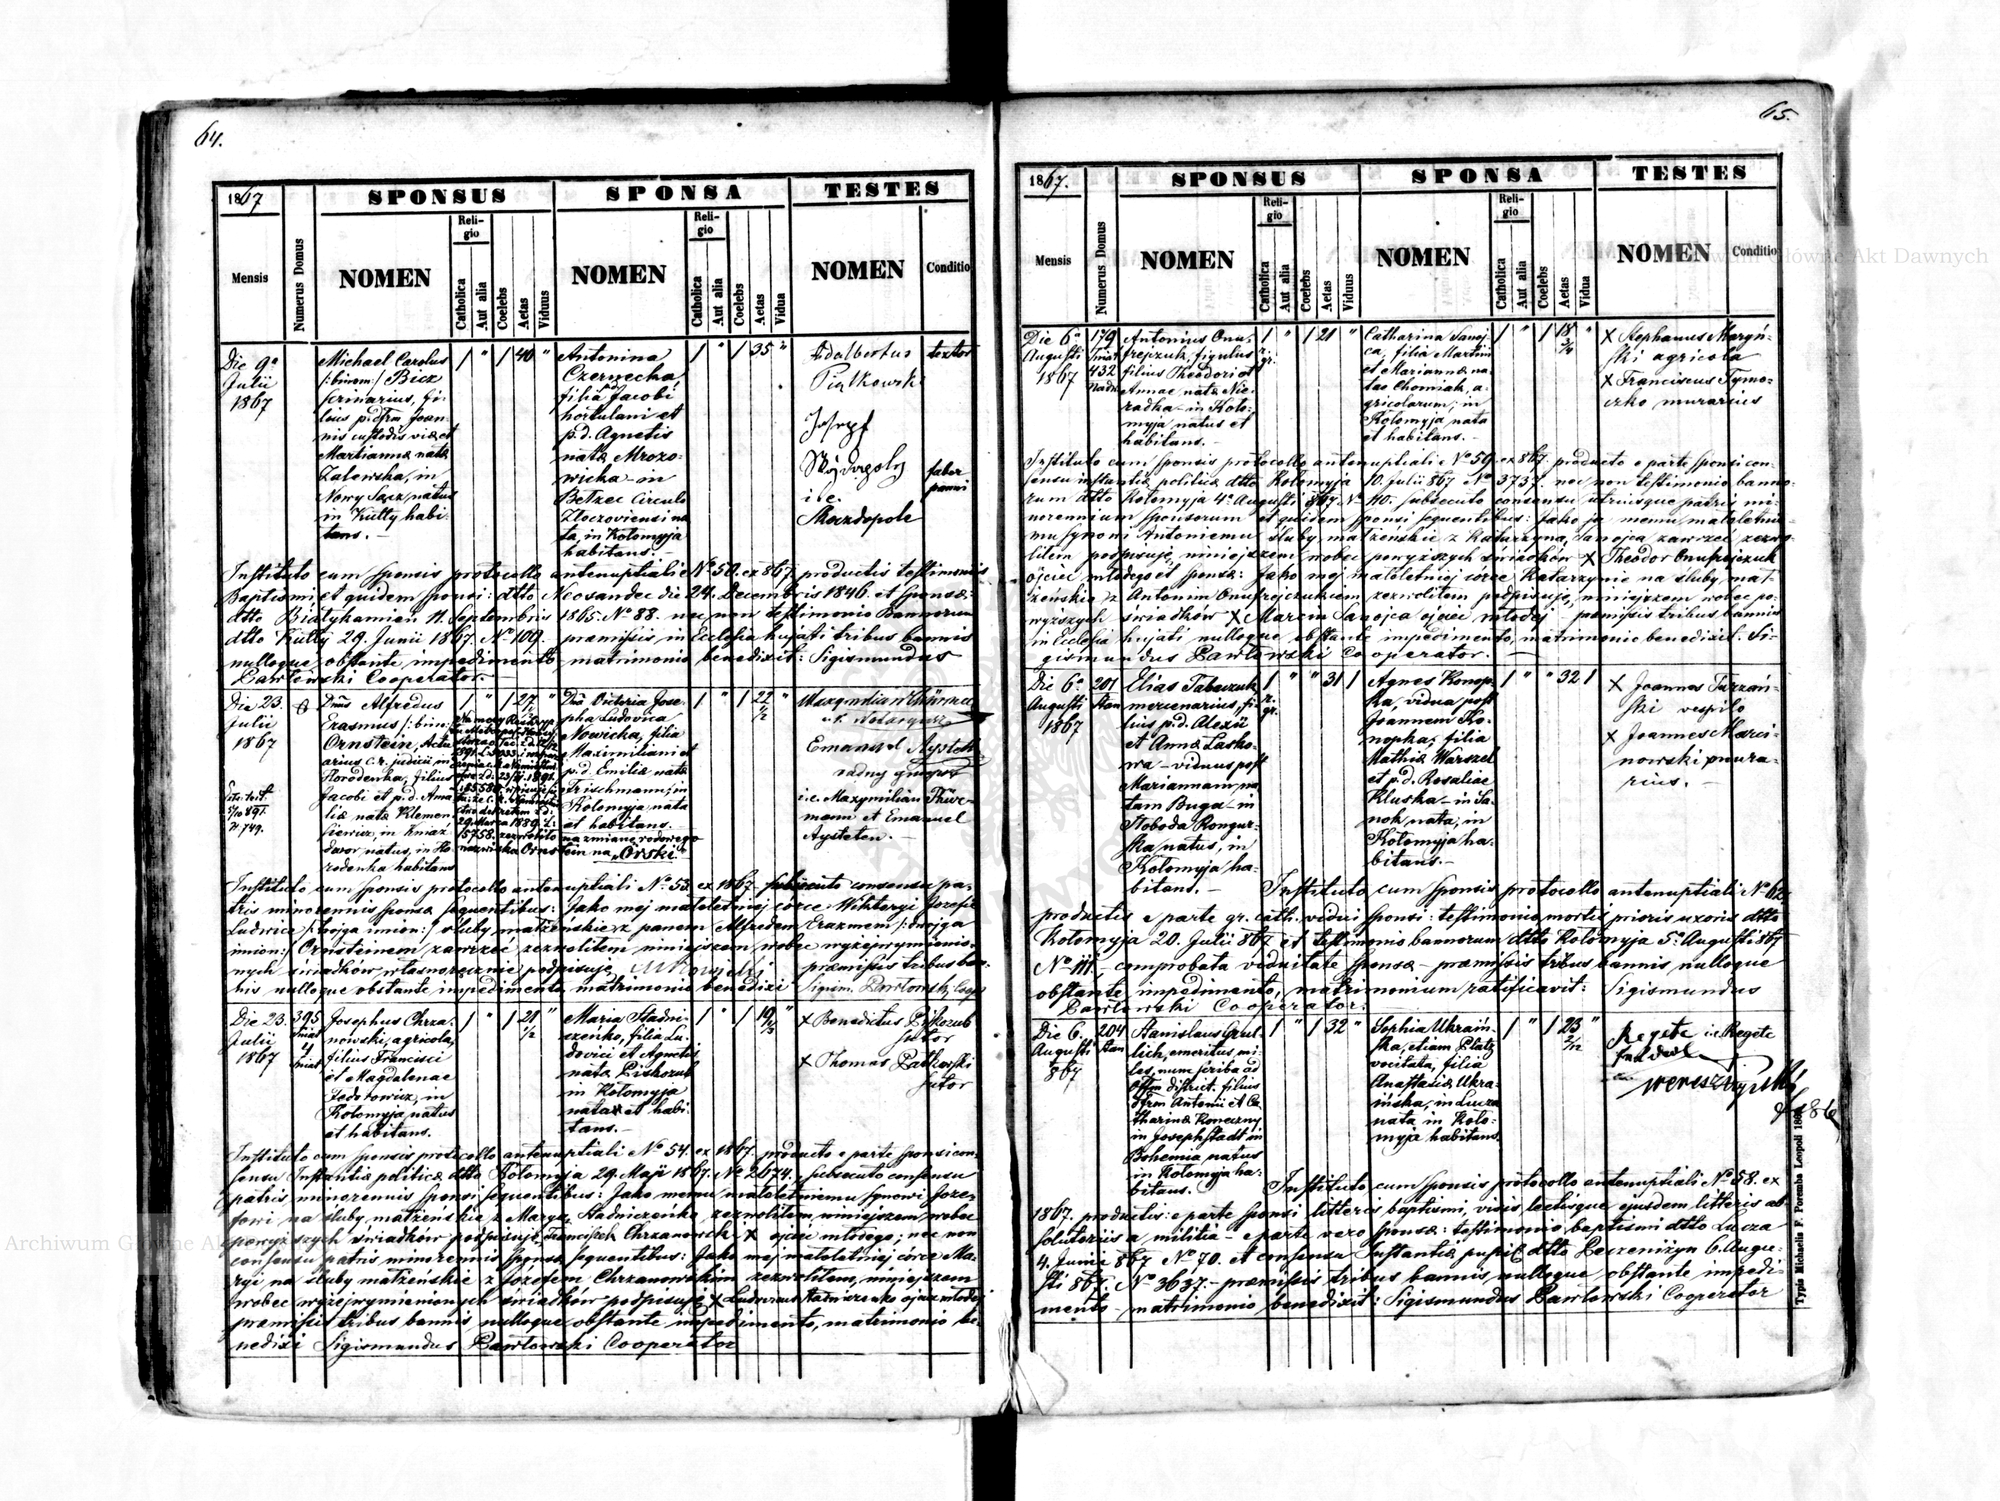 64.
1867
SPONSUS
SPONSA
TESTES
Mensis
Numerus Domus
NOMEN
Religio
Catholica
Aut alia
Coelebs
Aetas
Viduus
NOMEN
Religio
Catholica
Aut alia
Coelebs
Aetas
Vidua
NOMEN
Conditio
Die 9a
Julii
1867
Michael Carolus
/:binom:/ Bicz
fi-
lius p.d. Joan-
nis custodis viæ et
Mariannæ natæ
Zalewska, in
Nowy Sącz natus
in Kutty habi-
tans. –
/ " / 40 "
Antonina
Czernecka
filia Jacobi
hortulani et
p.d. Agnetis
natæ Mrozo-
wicka – in
Bełzec Circulo
Złoczoviensi na-
ta, in Kołomyja
habitans. –
/ " / 35 "
Adalbertus
Piątkowski
textor
Josef
i.e.
faber
Instituto cum sponsis protocollo antenuptiali No 50. ex 867. productis testimoniis
Baptismi et quidem sponsi: dtto Neosandec die 24. Decembris 1846. et sponsæ:
dtto Białykamień 11. Septembris 1865. No 88. nec non testimonio Bannorum
dtto Kutty 29. Junii 1867. No 109. præmissis in Ecclesia hujati tribus bannis
nulloque obstante impedimento matrimonio benedixit: Sigismundus
Pawłowski Cooperator. –
Die 23.
Julii
1867
Alfredus
Erasmus /:binom:/
Ornstein, Actu-
arius c.r. judicii in
Horodenka, filius
Jacobi et p.d. Ama-
liæ natæ Klemen-
siewicz, in Kniaz-
dwor natus, in Ho-
rodenka habitans
/ " / 27 "
nazwiska Orns-
tein na „Orski"
Victoria Jose-
pha Ludovica
Nowicka, filia
Maximiliani et
p.d. Emiliæ natæ
Frischmann, in
Kołomyja nata
et habitans.
/ " / 22 1/2 "
Emanuel Aysteten
i.e. Maxymilian Thür-
mann et Emanuel
Aysteten. –
Instituto cum sponsis protocollo antenuptiali No 53. ex 1867. subsecuto consensu pa-
tris minorennis sponsæ sequentibus: Jako mej małoletniej córce Wiktoryi Jozefie
Ludwice /:trojga imion:/ śluby małżeńskie z panem Alfredem Erazmem /:dwojga
imion:/ Ornsteinem zawrzeć zezwolitem niniejszem wobec wyżejwymienio-
nych świadków własnoręcznie podpisuję præmissis tribus ban-
nis nulloque obstante impedimento, matrimonio benedixi Sigism. Pawłowski, Coop.
Die 23.
Julii
1867
395
Josephus Chrza-
nowski, agricola,
filius Francisci
et Magdalenae
Fedorowicz, in
Kołomyja natus
et habitans.
/ " / 21 1/2 "
Maria Stadni-
czeńko, filia Lu-
dovici et Agnetis
natæ Piskozub
in Kołomyja
nata et habi-
tans. –
/ " / 19
x Benedictus Piskozub
sutor
x Thomas Patkowski
sutor
Instituto cum sponsis protocollo antenuptiali No 54. ex 1867. producto e parte sponsi con-
sensu Instantiæ politicæ dtto Kołomyja 29. Maji 1867. No 2674. subsecuto consensu
patris minorennis sponsi sequentibus: Jako memu małoletniemu synowi Joze-
fowi na śluby małżeńskie z Maryą Stadniczeńko zezwolitem, niniejszem wobec
powyższych świadków podpisuję, Franciszek Chrzanowski x ojciec młodego; nec non
consensu patris minorennis sponsæ sequentibus: Jako mej małoletniej córce Ma-
ryi na śluby małżeńskie z Jozefem Chrzanowskim zezwolitem, niniejszem
wobec wyżejwymienionych świadków podpisuję x Ludovicus Stadniczenko ojciec młodej
præmissis tribus bannis nulloque obstante impedimento, matrimonio be-
nedixi Sigismundus Pawłowski Cooperator
65.
1867.
SPONSUS
SPONSA
TESTES
Mensis
Numerus Domus
NOMEN
Religio
Catholica
Aut alia
Coelebs
Aetas
Viduus
NOMEN
Religio
Catholica
Aut alia
Coelebs
Aetas
Vidua
NOMEN
Conditio
Die 6a
Augusti
1867
179
432
Antonius Onu-
frejczuk, figulus
filius Theodori et
Annae natæ Nie-
radka – in Koło-
myja natus et
habitans. –
/ " / 21 "
Catharina Sanoj-
ca, filia Martini
et Mariannæ na-
tae Chomiak, a-
gricolarum, in
Kołomyja nata
et habitans. –
/ " / 18 3/4 "
x Stephanus Maryń-
ski agricola
x Franciscus Tymo-
czko murarius
Instituto cum sponsis protocollo antenuptiali No 59. ex 867. producto e parte sponsi con-
sensu instantiæ politicæ dtto Kołomyja 10. Julii 867 No 3737. nec non testimonio banno-
rum dtto Kołomyja 4a Augusti 867. No 110. subsecuto consensu utriusque patris mi-
norennium sponsorum et quidem sponsi sequentibus: Jako ja memu małoletnie-
mu synowi Antoniemu śluby małżeńskie z Katarzyną Sanojca zawrzeć zezwo-
litem podpisuję, niniejszem wobec powyższych świadków x Theodor Onufrejczuk
ojciec młodego et sponsæ: Jako mej małoletniej córce Katarzynie na śluby mał-
żeńskie z Antonim Onufrejczukiem zezwolitem podpisuję, niniejszem wobec po-
wyższych świadków x Marcin Sanojca ojciec młodej – præmissis tribus bannis
in Ecclesia hujati nulloque obstante impedimento, matrimonio benedixit: Si-
gismundus Pawłowski Cooperator. –
Die 6a
Augusti
1867
201
Elias Tabaczuk
mercenarius, fi-
lius p.d. Alexii
et Annæ Lasko-
wa – viduus post
Mariannam na-
tam Buga – in
Słoboda Rongur-
ska natus, in
Kołomyja ha-
bitans. –
/ " " 31 /
Agnes Konop-
ka, vidua post
Joannem Ko-
nopka, filia
Mathiæ Warszel
et p.d. Rosaliae
Kluska – in Sa-
nok nata, in
Kołomyja ha-
bitans. –
/ " " 32 /
x Joannes Tarzań-
ski vespilo
x Joannes Marci-
nowski mura-
rius. –
Instituto cum sponsis protocollo antenuptiali No 62.
productis e parte gr. cath. vidui sponsi: testimonio mortis prioris uxoris dtto
Kołomyja 20. Julii 867 et testimonio bannorum dtto Kołomyja 5a Augusti 867
No 111. – comprobata viduitate sponsæ – præmissis tribus bannis nulloque
obstante impedimento, matrimonium ratificavit: Sigismundus
Pawłowski Cooperator.
Die 6.
Augusti
867
204
Stanislaus Grul-
lich, emeritus mi-
les, nunc scriba ad
offm district. filius
Antonii et Ca-
tharinæ Koneczny
in Josephstadt in
Bohemia natus
in Kołomyja ha-
bitans.
/ " / 32 "
Sophia Ukraiń-
ska, etiam Platz
vocitata, filia
Anastasiæ Ukra-
ińska, in Lucza
nata in Koło-
myja habitans.
/ " / 23 2/12 "
Regete i.e. Regete
Instituto cum sponsis protocollo antenuptiali No 58. ex
1867. productis: e parte sponsi litteris baptismi, visis lectisque ejusdem litteris ab-
solutoriis a militia – e parte vero sponsæ: testimonio baptismi dtto Lucza
4. Junii 867 No 70. et consensu Instantiæ pupil. dtto Peczeniżyn 6. Augu-
sti 867. No 3637. – præmissis tribus bannis nulloque obstante impedi-
mento – matrimonio benedixit: Sigismundus Pawłowski Cooperator
Typis Michaelis F. Poremba Leopoli
Archiwum Główne Akt Dawnych
Archiwum Główne Akt Dawnych